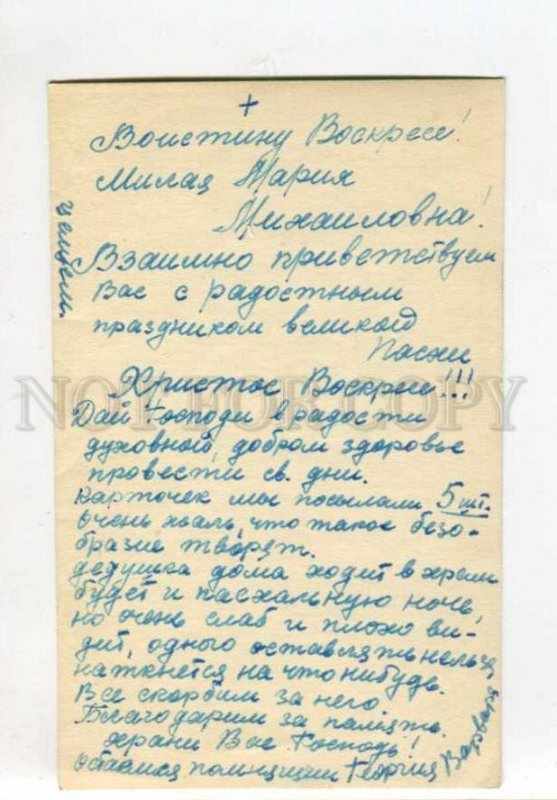 +
Воистину Воскресе!
Милая Мария
Михаиловна!
Взаимно приветствуем
Вас с радостным
праздником великой
Пасхи
Христос Воскресе!!!
Дай Господи в радости
духовной, добром здоровье
провести св. дни.
Карточек мы посылали 5 шт.
очень жаль, что такое безо-
бразие творят.
дедушка дома ходит в храм
будет и пасхальную ночь,
но очень слаб и плохо ви-
дит, одного оставлять нельзя
наткнется на что нибудь.
Все скорбим за него.
Благодарим за память.
храни Вас Господь!
остаемся помнящии Георгий Варвара
целуем.
NOT FOR COPY